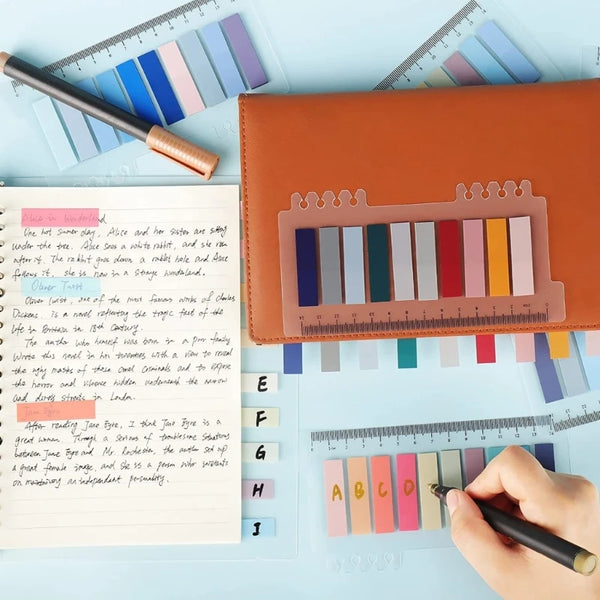 Alice in Wonderland
One hot summer day, Alice and her sister are sitting
under the tree. Alice sees a white rabbit, and she runs
after it. The rabbit goes down a rabbit hole and Alice
follows it. she is now in a strange wonderland.
Oliver Twist
Oliver Twist, one of the most famous works of Charles
Dickens. is a novel reflecting the tragic fact of the
life in Britain in 18th Century.
The author who himself was born in a poor family
wrote this novel in his twenties with a view to reveal
the ugly masks of those cruel criminals and to expose
the horror and violence hidden underneath the narrow
and dirty streets in London.
Jane Eyre
After reading Jane Eyre, I think Jane Eyre is a
great woman. Through a series of troublesome situations
between Jane Eyre and Mr. Rochester, the author set up
a great female image, and she is a person who insists
on maintaining an independent personality.
E
F
G
H
I
A B C D